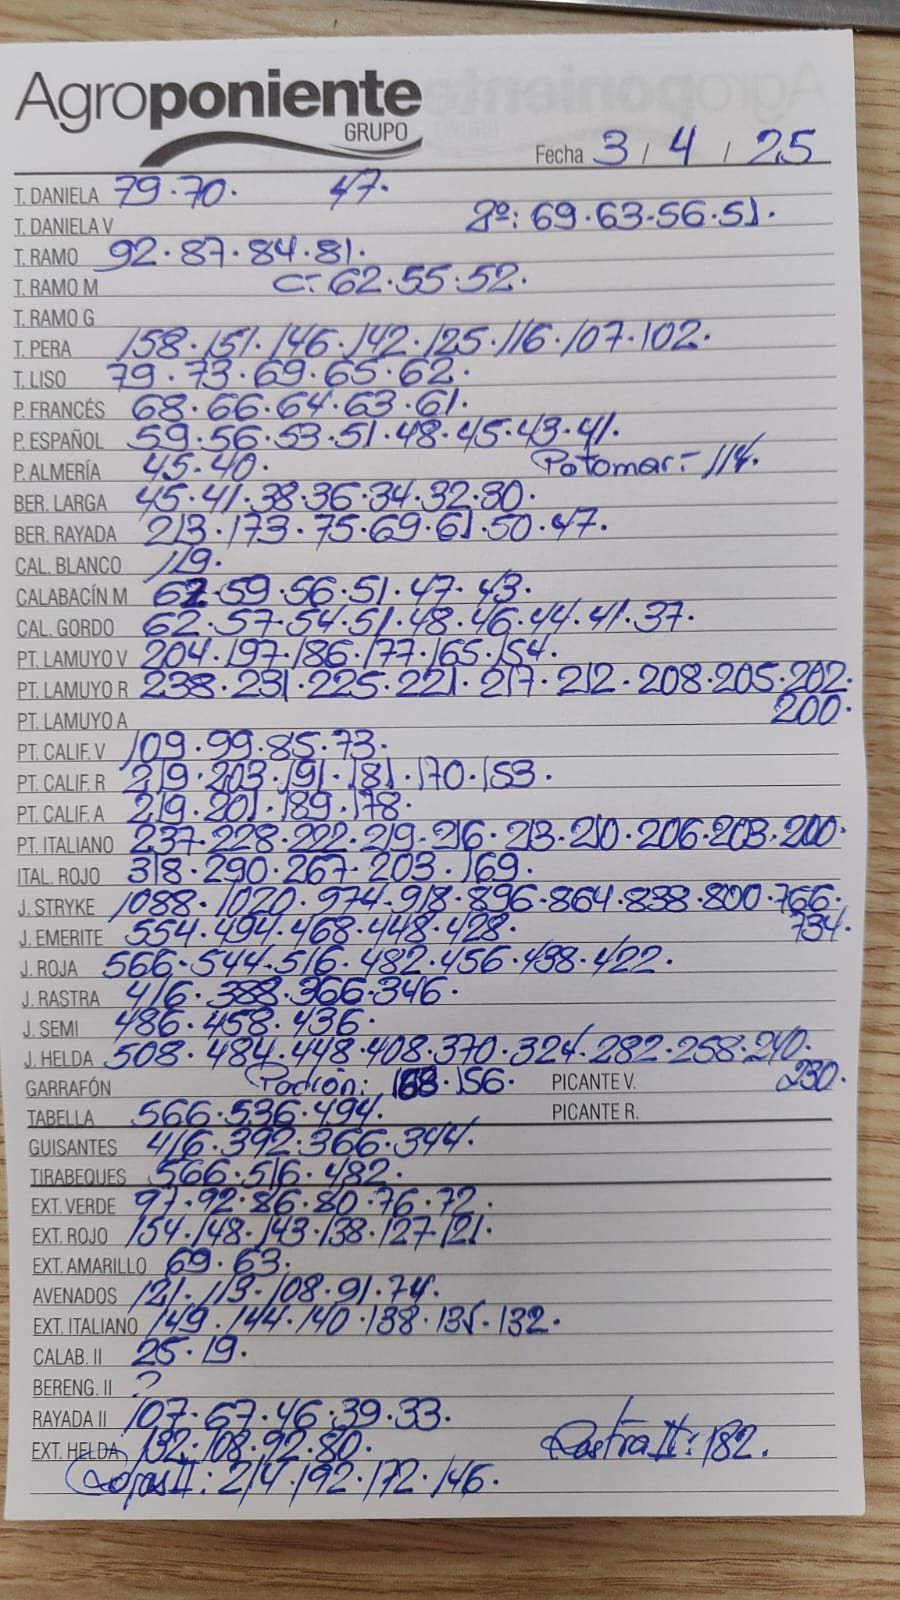 Agroponiente
GRUPO
Fecha 3 / 4 / 25
T. DANELA 79·70· 47·
T. DANIELA V 2º: 69·63·56·51·
T. RAMO 92·87·84·81·
T. RAMO M C-: 62·55·52·
T. RAMO G
T. PERA 158·151·146·142·125·116·107·102·
T. LISO 79·73·69·65·62·
P. FRANCÉS 68·66·64·63·61·
P. ESPAÑOL 59·56·53·51·48·45·43·41·
P. ALMERÍA 45·40· Potomar:- 114·
BER. LARGA 45·41·38·36·34·32·30·
BER. RAYADA 213·173·75·69·61·50·47·
CAL. BLANCO 119·
CALABACÍN M 62·59·56·51·47·43·
CAL. GORDO 62·57·54·51·48·46·44·41·37·
PT. LAMUYO V 204·197·186·177·165·154·
PT. LAMUYO R 238·231·225·221·217·212·208·205·202·
PT. LAMUYO A 200·
PT. CALIF. V 109·99·85·73·
PT. CALIF. R 219·203·191·181·170·153·
PT. CALIF. A 219·201·189·178·
PT. ITALIANO 237·228·222·219·216·213·210·206·203·200·
ITAL. ROJO 318·290·267·203·169·
J. STRYKE 1088·1020·974·918·896·864·838·800·766·
J. EMERITE 554·494·468·448·428· 734·
J. ROJA 566·544·516·482·456·438·422·
J. RASTRA 416·388·366·346·
J. SEMI 486·458·436·
J. HELDA 508·484·448·408·370·324·282·258·240·
GARRAFÓN 168·156· PICANTE V. 230·
TABELLA 566·536·494· PICANTE R.
GUISANTES 416·392·366·344·
TIRABEQUES 566·516·482·
EXT. VERDE 97·92·86·80·76·72·
EXT. ROJO 154·148·143·138·127·121·
EXT. AMARILLO 69·63·
AVENADOS 121·113·108·91·74·
EXT. ITALIANO 149·144·140·138·135·132·
CALAB. II 25·19·
BERENG. II ?
RAYADA II 107·67·46·39·33·
EXT. HELDA 132·108·92·80· Rastra II: 182·
Rojas II: 214·192·172·146·